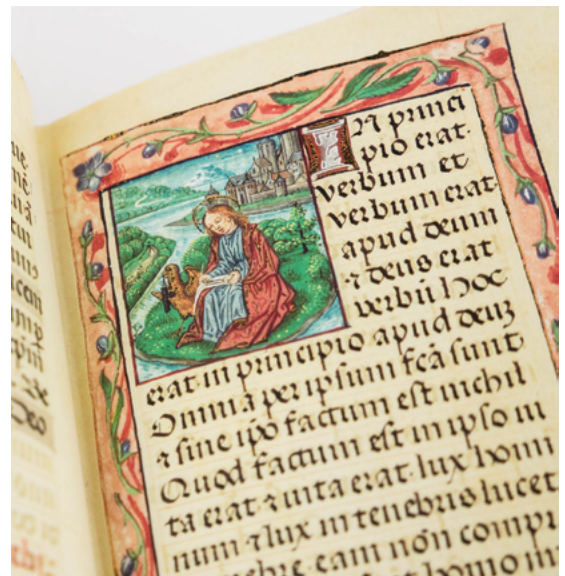 In princi
pio erat.
verbum et
verbum erat.
apud deum
⁊ deus erat
verbū hoc
erat in principio apud deuȝ
Omnia per ipsum fcā sunt
⁊ sine ipō factum est nichil
Quod factum est in ipso ui
ta erat ⁊ uita erat. lux homi
num ⁊ lux in tenebris lucet
tenebre eam non compr
homo m